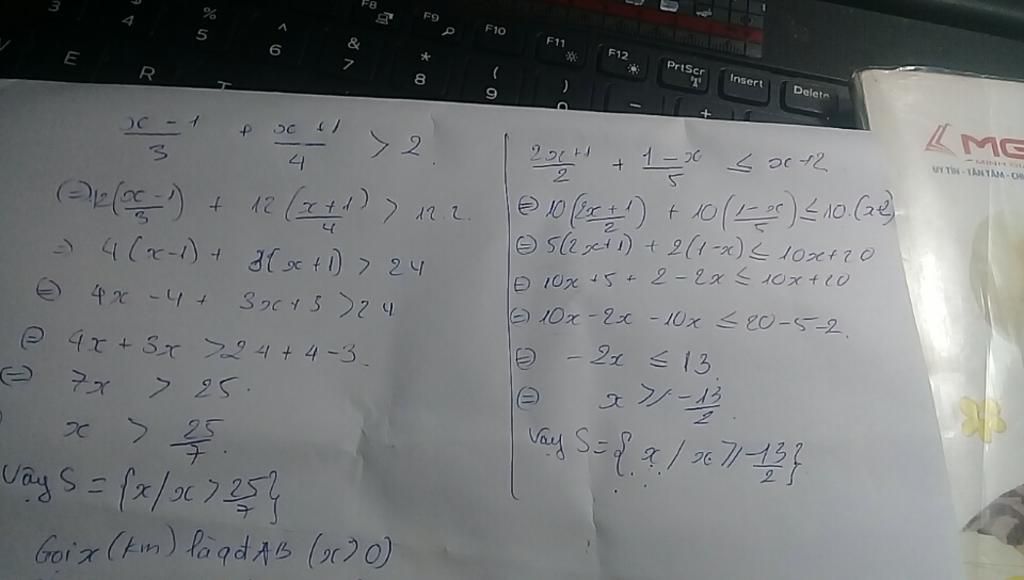 F8
F9
F10
F11
F12
PrtScr
Insert
Delete
3
4
%
5
^
6
&
7
*
8
(
9
)
0
–
+
E
R
T
x - 1/3 + x + 1/4 > 2.
(=) 12(x - 1/3) + 12(x + 1/4) > 12.2.
=) 4(x - 1) + 3(x + 1) > 24
(=) 4x - 4 + 3x + 3 > 24
(=) 4x + 3x > 24 + 4 - 3.
(=) 7x > 25.
x > 25/7.
Vậy S = {x / x > 25/7}
Gọi x (km) là qđ AB (x > 0)
2x + 1/2 + 1 - x/5 ≤ x + 2
(=) 10(2x + 1/2) + 10(1 - x/5) ≤ 10.(x+2)
(=) 5(2x + 1) + 2(1 - x) ≤ 10x + 20
(=) 10x + 5 + 2 - 2x ≤ 10x + 20
(=) 10x - 2x - 10x ≤ 20 - 5 - 2.
(=) - 2x ≤ 13.
(=) x ≥ - 13/2.
Vậy S = {x / x ≥ - 13/2}
MG
UY TÍN - TẬN TÂM - CH